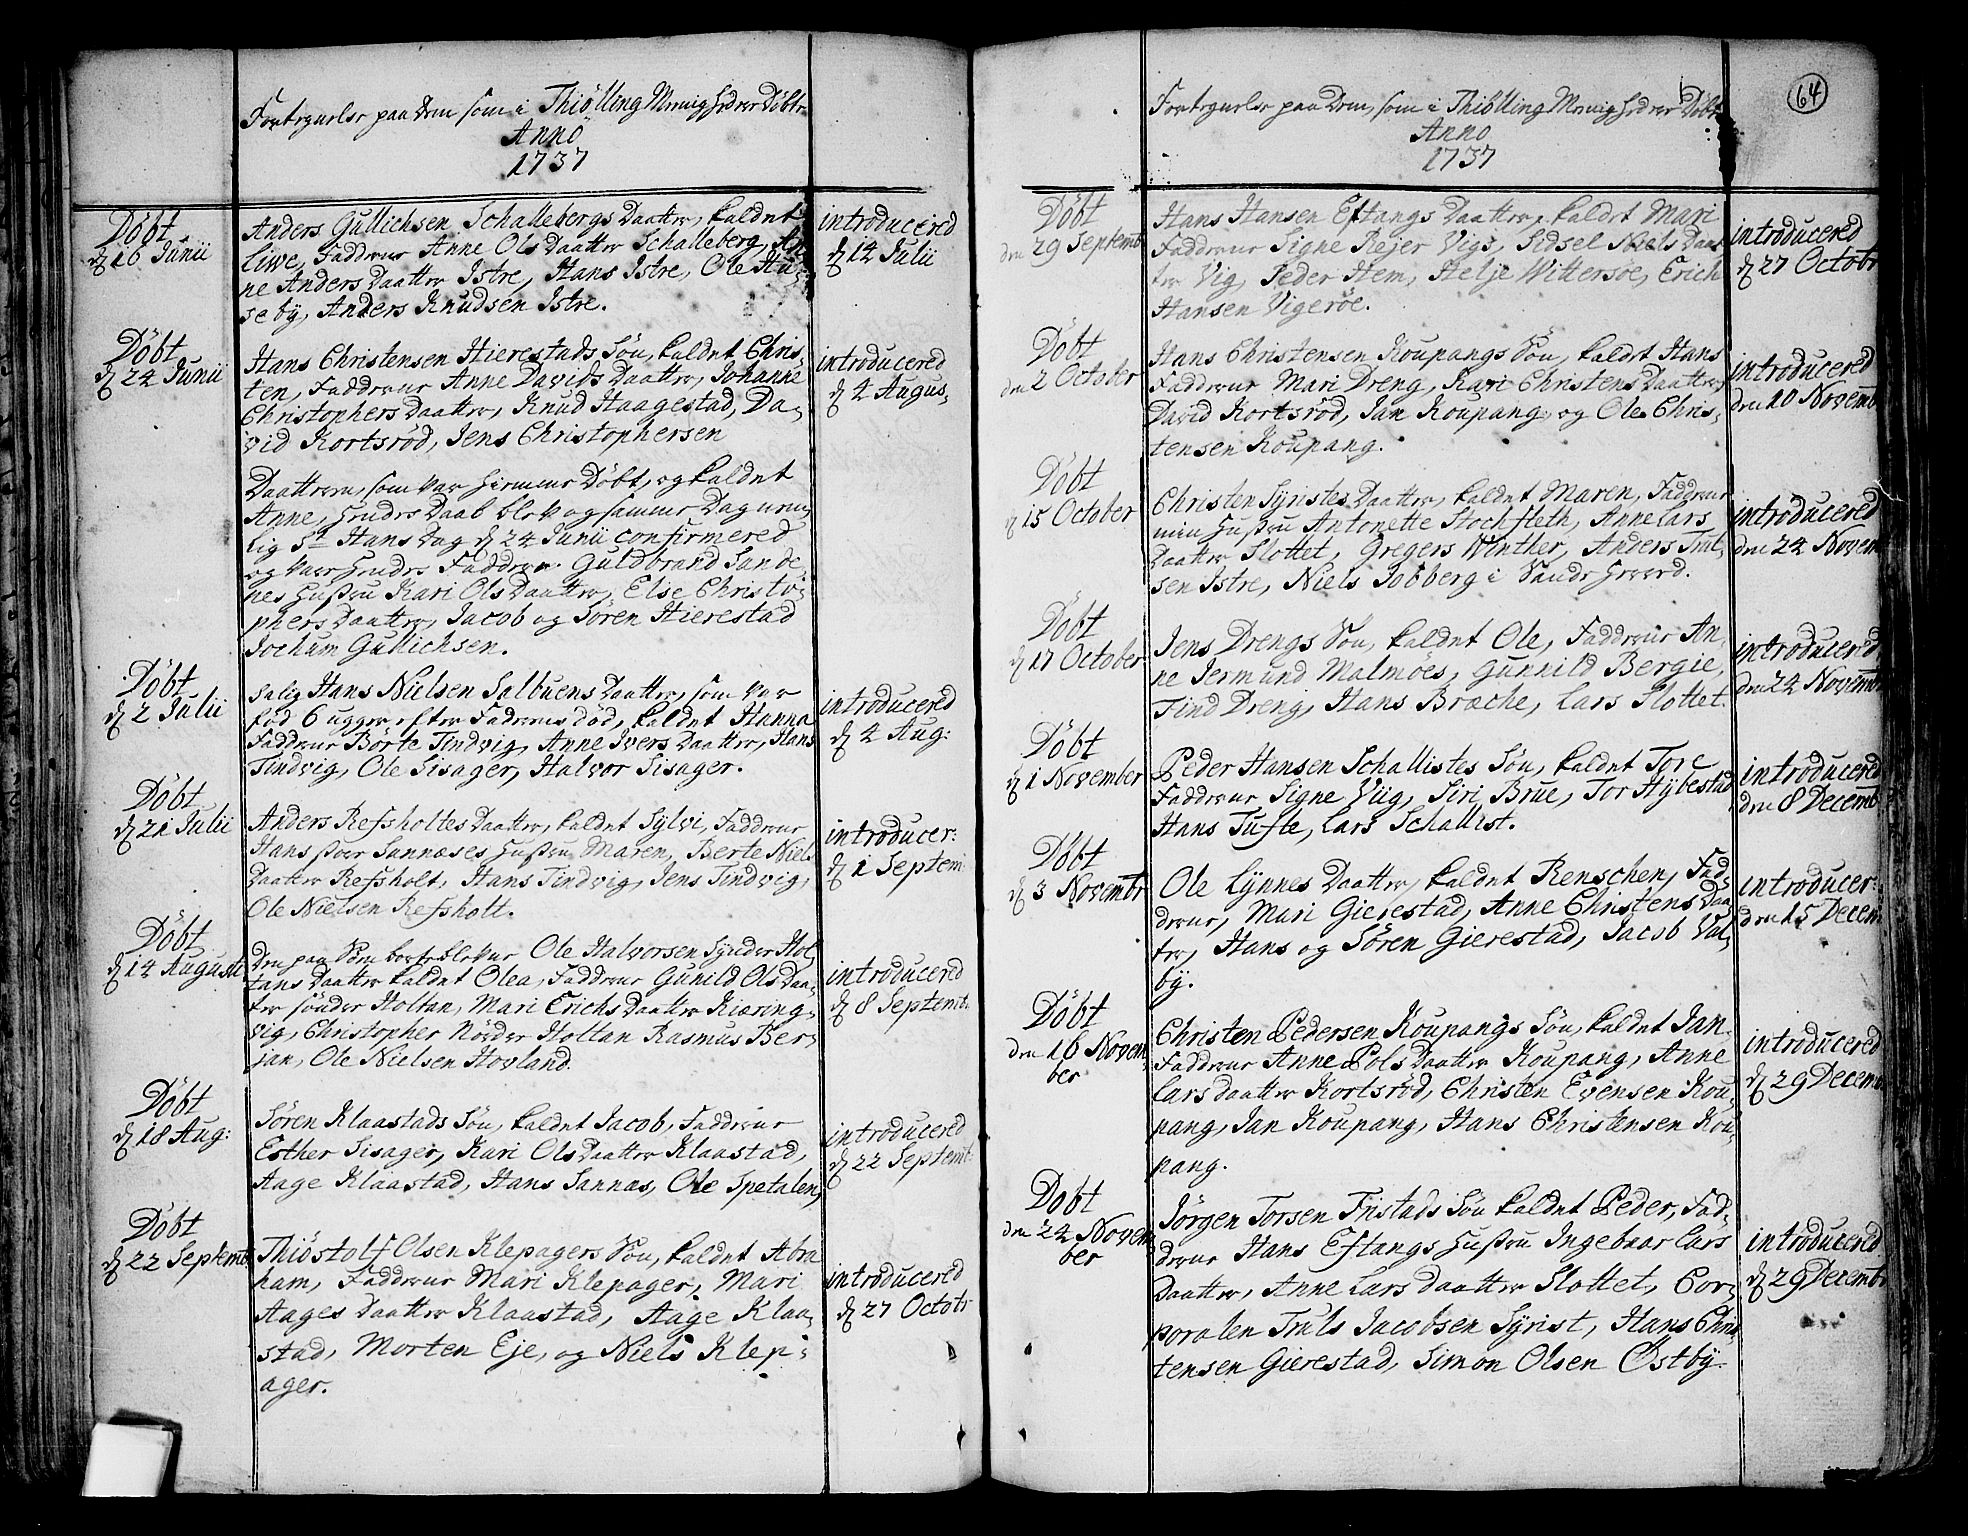 Fortegnelse paa dem som i Thiölling Menighed er Döbte
Anno
1737
Döbt
d 16 Junii
Anders Gullichsen Schallebergs Daatter, kaldet
Liwe, Faddrene Anne Ols Daatter Schalleberg, An
ne Anders Daatter Istre, Hans Istre, Ole Hu-
seby, Anders Knudsen Istre.
introducered
d 14 Julii
Döbt
d 24 Junii
Hans Christensen Hierestads Sön, kaldet Chris-
ten, Faddrene Anne Davids Daatter, Johanne
Christophers Daatter, Knud Haagestad, Da-
vid Kortsröd, Jens Christophersen
introducered
d 4 Augus,
Daatteren, som var hiemme Döbt, og kaldet
Anne, hendes Daab blev og samme Dag nem-
lig St Hans Dag d 24 Junii confirmered
og var hendes Faddrene. Guldbrand Sande-
nes Hustru Kari Ols Daatter, Else Christo-
phers Daatter, Jacob og Sören Hierestad
Jochum Gullichsen.
Döbt
d 2 Julii
salig Hans Nielsen Salbuens Daatter, som var
fød 6 uger efter Faderens død, kaldet Hanna
Faddrene Börte Tindvig, Anne Ivers Daatter, Hans
Tindvig, Ole Sisager, Halvor Sisager.
introducered
d 4 Aug:
Döbt
d 21 Julii
Anders Refsholtes Daatter, kaldet Sylvi, Faddrene
Hans Sannæses Hustru Maren, Berte Niels
Daatter Refsholt, Hans Tindvig, Jens Tindvig,
Ole Nielsen Refsholt.
introducer:
d 1 Septem
Döbt
d 14 Augusti
Den paa Söen bortblevne Ole Halvorsen Synder Hol-
tans Daatter kaldet Olea, Faddrene Gunild Ols Daa-
ter sönder Holtan, Mari Erichs Daatter Kiæring-
vig, Christopher Nörder Holtan Rasmus Ber-
jan, Ole Nielsen Hovland.
introducered
d 8 Septemb.
Döbt
d 18 Aug:
Sören Klaastads Sön, kaldet Jacob, Faddrene
Esther Sisager, Kari Ols Daatter Klaastad,
Aage Klaastad, Hans Sannæs, Ole Spetalen,
introducered
d 22 Septemb.
Döbt
d 22 Septemb
Thiöstolf Olsen Klepagers Sön, kaldet Abra
ham, Faddrene Mari Klepager, Mari
Aages Daatter Klaastad, Aage Klaa-
stad, Morten Eje, og Niels Klep-
ager.
introducered
d 27 Octobr
64
Fortegnelse paa dem, som i Thiölling Menighed er Döbt
Anno
1737
Döbt
den 29 Septemb
Hans Hansen Eftangs Daatter, kaldet Mari
Faddrene Signe Rejer Vigs, Sidsel Niels Daat-
ter Vig, Peder Hem, Helje Wittersöe, Erich
Hansen Vigeröe.
introducered
d 27 Octobr
Döbt
den 2 October
Hans Christensen Koupangs Sön, kaldet Hans
Faddrene Mari Dreng, Kari Christens Daatter,
David Kortsröd, Jan Koupang, og Ole Chris-
tensen Koupang.
introducered
den 10 Novemb
Döbt
d 15 October
Christen Syristes Daatter, kaldet Maren, Faddrene
min Hustru Antonette Stochfleth, Anne Lars
Daatter Slottet, Gregers Winther, Anders Trul-
sen Istre, Niels Jobberg i Sandeherred.
introducered
den 24 Novem
Döbt
d 17 October
Jens Drengs Sön, kaldet Ole, Faddrene An
ne Jermund Malmöes, Gunnild Bergie,
Find Dreng, Hans Bræche, Lars Slottet.
introducered
den 24 Novemb
Döbt
d 1 November
Peder Hansen Schallistes Sön, kaldet Tore
Faddrene, Signe Viig, Siri Brue, Tor Hybestad
Hans Tufte, Lars Schallist.
introducered
den 8 Decemb
Döbt
d 3 Novembr
Ole Lynnes Daatter, kaldet Renschen, Fad-
drene, Mari Gierestad, Anne Christens Daa
ter, Hans og Sören Gierestad, Jacob Val-
by.
introducer:
den 15 Decem
Döbt
den 16 Novem
ber
Christen Pedersen Koupangs Sön, kaldet Jan.
Faddrene Anne Pols Daatter Koupang, Anne
Lars Daatter Kortsröd, Christen Evensen Kou-
pang, Jan Koupang, Hans Christensen Kou-
pang.
introducered
d 29 Decem
Döbt
den 24 Novem
ber
Jörgen Torsen Fristads Sön kaldet Peder, Fad-
drene Hans Eftangs Hustru Ingebaar Lars
Daatter, Anne Lars Daatter Slottet, Cor-
poralen Truls Jacobsen Syrist, Hans Chris-
tensen Gierestad, Simon Olsen Östby.
introducered
d 29 Decemb